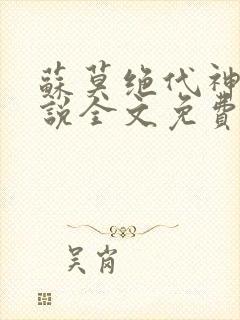 蘇莫绝代神
說全文免費
吴肖